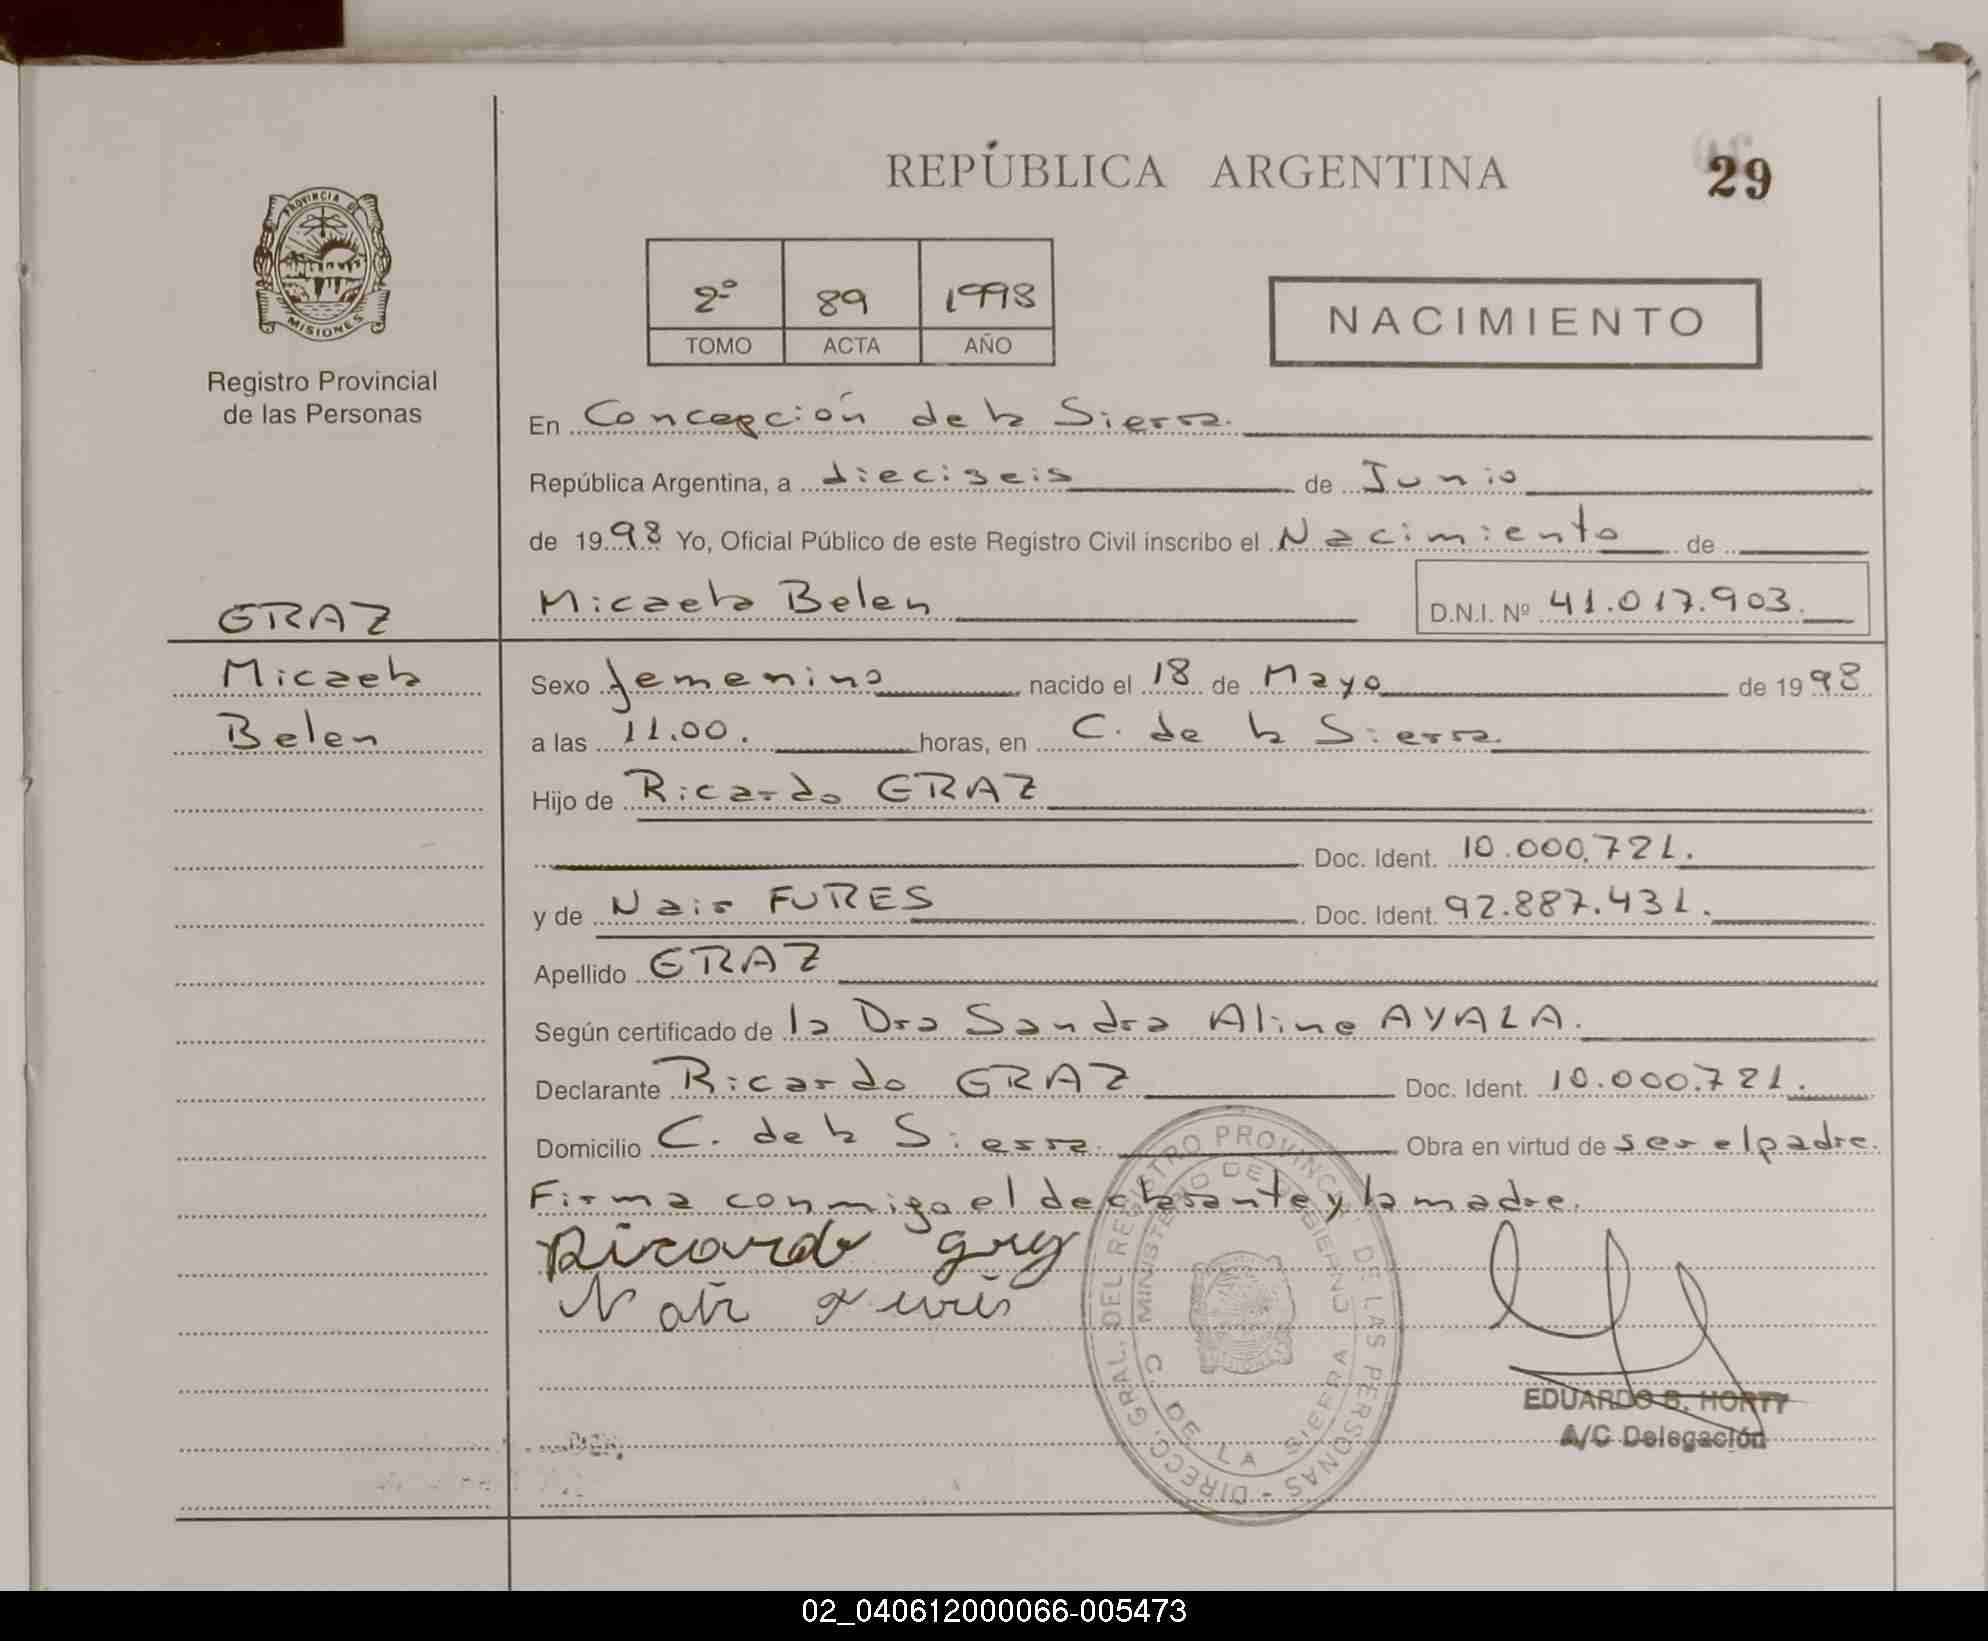 REPÚBLICA ARGENTINA
29
PROVINCIA DE
MISIONES
Registro Provincial
de las Personas
2º 89 1998
TOMO ACTA AÑO
NACIMIENTO
En Concepción de la Sierra.
República Argentina, a dieciseis de Junio
de 1998 Yo, Oficial Público de este Registro Civil inscribo el Nacimiento de
GRAZ Micaela Belen D.N.I. Nº 41.017.903.
Micaela Sexo femenino nacido el 18 de Mayo de 1998
Belen a las 11.00. horas, en C. de la Sierra
Hijo de Ricardo GRAZ
Doc. Ident. 10.000.721.
y de Nair FURES Doc. Ident. 92.887.431.
Apellido GRAZ
Según certificado de la Dra Sandra Aline AYALA.
Declarante Ricardo GRAZ Doc. Ident. 10.000.721.
Domicilio C. de la Sierra. Obra en virtud de ser el padre.
Firma conmigo el declarante y la madre.
Ricardo
Nair
DIRECC. GRAL. DEL REGISTRO PROVINCIAL DE LAS PERSONAS -
MINISTERIO DE GOBIERNO
C. DE LA SIERRA
EDUARDO B. HORTY
A/C Delegación
02_040612000066-005473